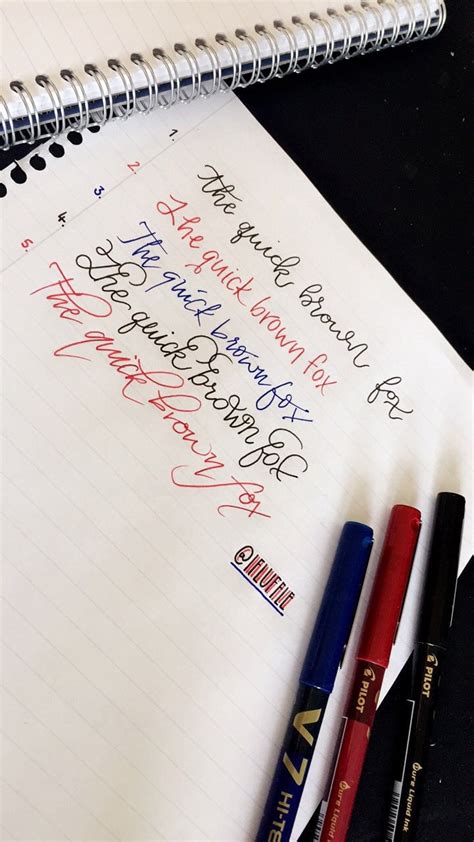 1. the quick brown fox
2. The quick brown fox
3. The quick brown fox
4. The quick brown fox
5. The quick brown fox
V7 HI-TE
PILOT
Pure Liquid
PILOT
Pure Liquid Ink